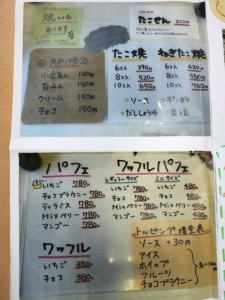 焼いも
あります
大判焼
小倉あん 130円
白あん 130円
クリーム 150円
チョコ 150円
たこせん 200円
たこ焼
6コ入 390円
8コ入 520円
10コ入 650円
ねぎたこ焼
6コ入 420円
8コ入 560円
10コ入 700円
ソース
だししょうゆ
パフェ
いちご 780円
チョコブラウニー 780円
ティラミス 780円
Mixベリー 780円
マンゴー 780円
ワッフル
いちご 380円
チョコ 380円
ワッフルパフェ
レギュラーサイズ
いちご 780円
チョコ 780円
Mixベリー 780円
マンゴー 780円
ミニサイズ
いちご 480円
チョコ 480円
Mixベリー 480円
マンゴー 480円
トッピング増量表
ソース +30円
アイス
ホイップ
フルーツ
チョコブラウニー